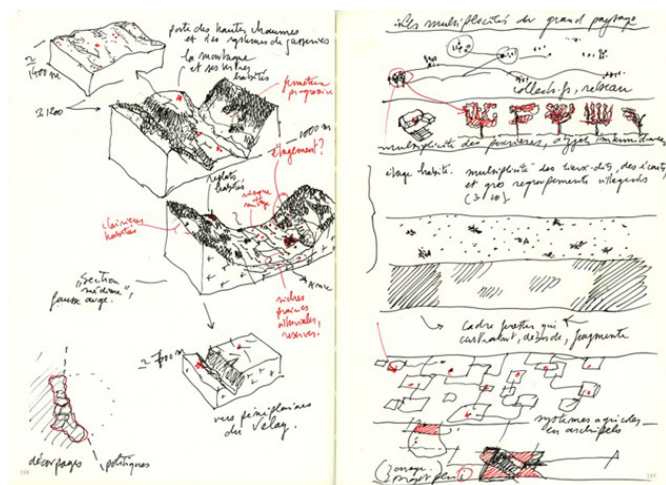 porte des hautes chaumes
et des systèmes de jasseries
la montagne
et ses versants
habités
fermeture
progressive
1400 m
± 1200
1000 m
étagement ?
replats
habités
risque
mitage
clairières
habitées
"section
médiane",
fausse auge.
riches
plaines
alluviales,
réserves.
≃ 700 m
vers pénéplaines
du Velay.
découpages
politiques
188
Les multiplicités du grand paysage
collectifs, réseau
multiplicité des
étage habité. multiplicité des lieux-dits, des écarts
et gros regroupements villageois
cadre forestier qui
construit, déborde, fragmente
systèmes agricoles
en archipels
189